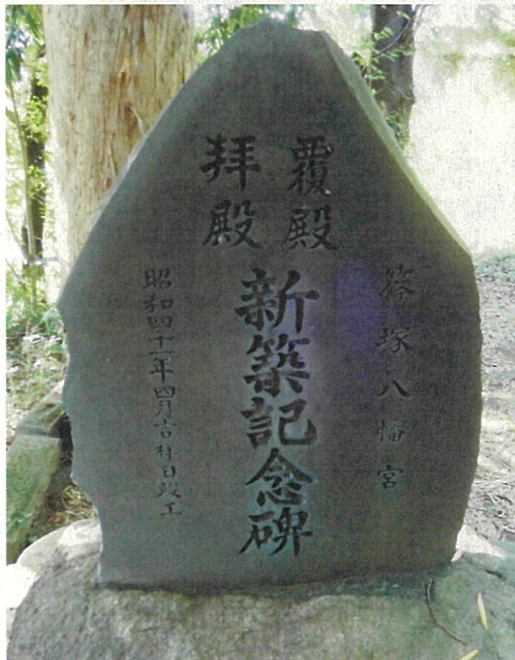 篠塚八幡宮
覆殿
拝殿
新築記念碑
昭和四十一年四月吉祥日竣工